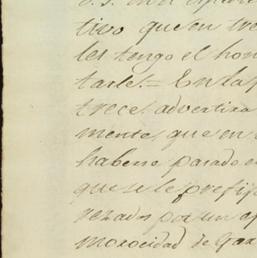 tivo que en tre
les tengo el hon
tarle = En la p
trece advertira
mente, que en
haberse pasado
que se le prefij
rezado por un ap
morocidad de